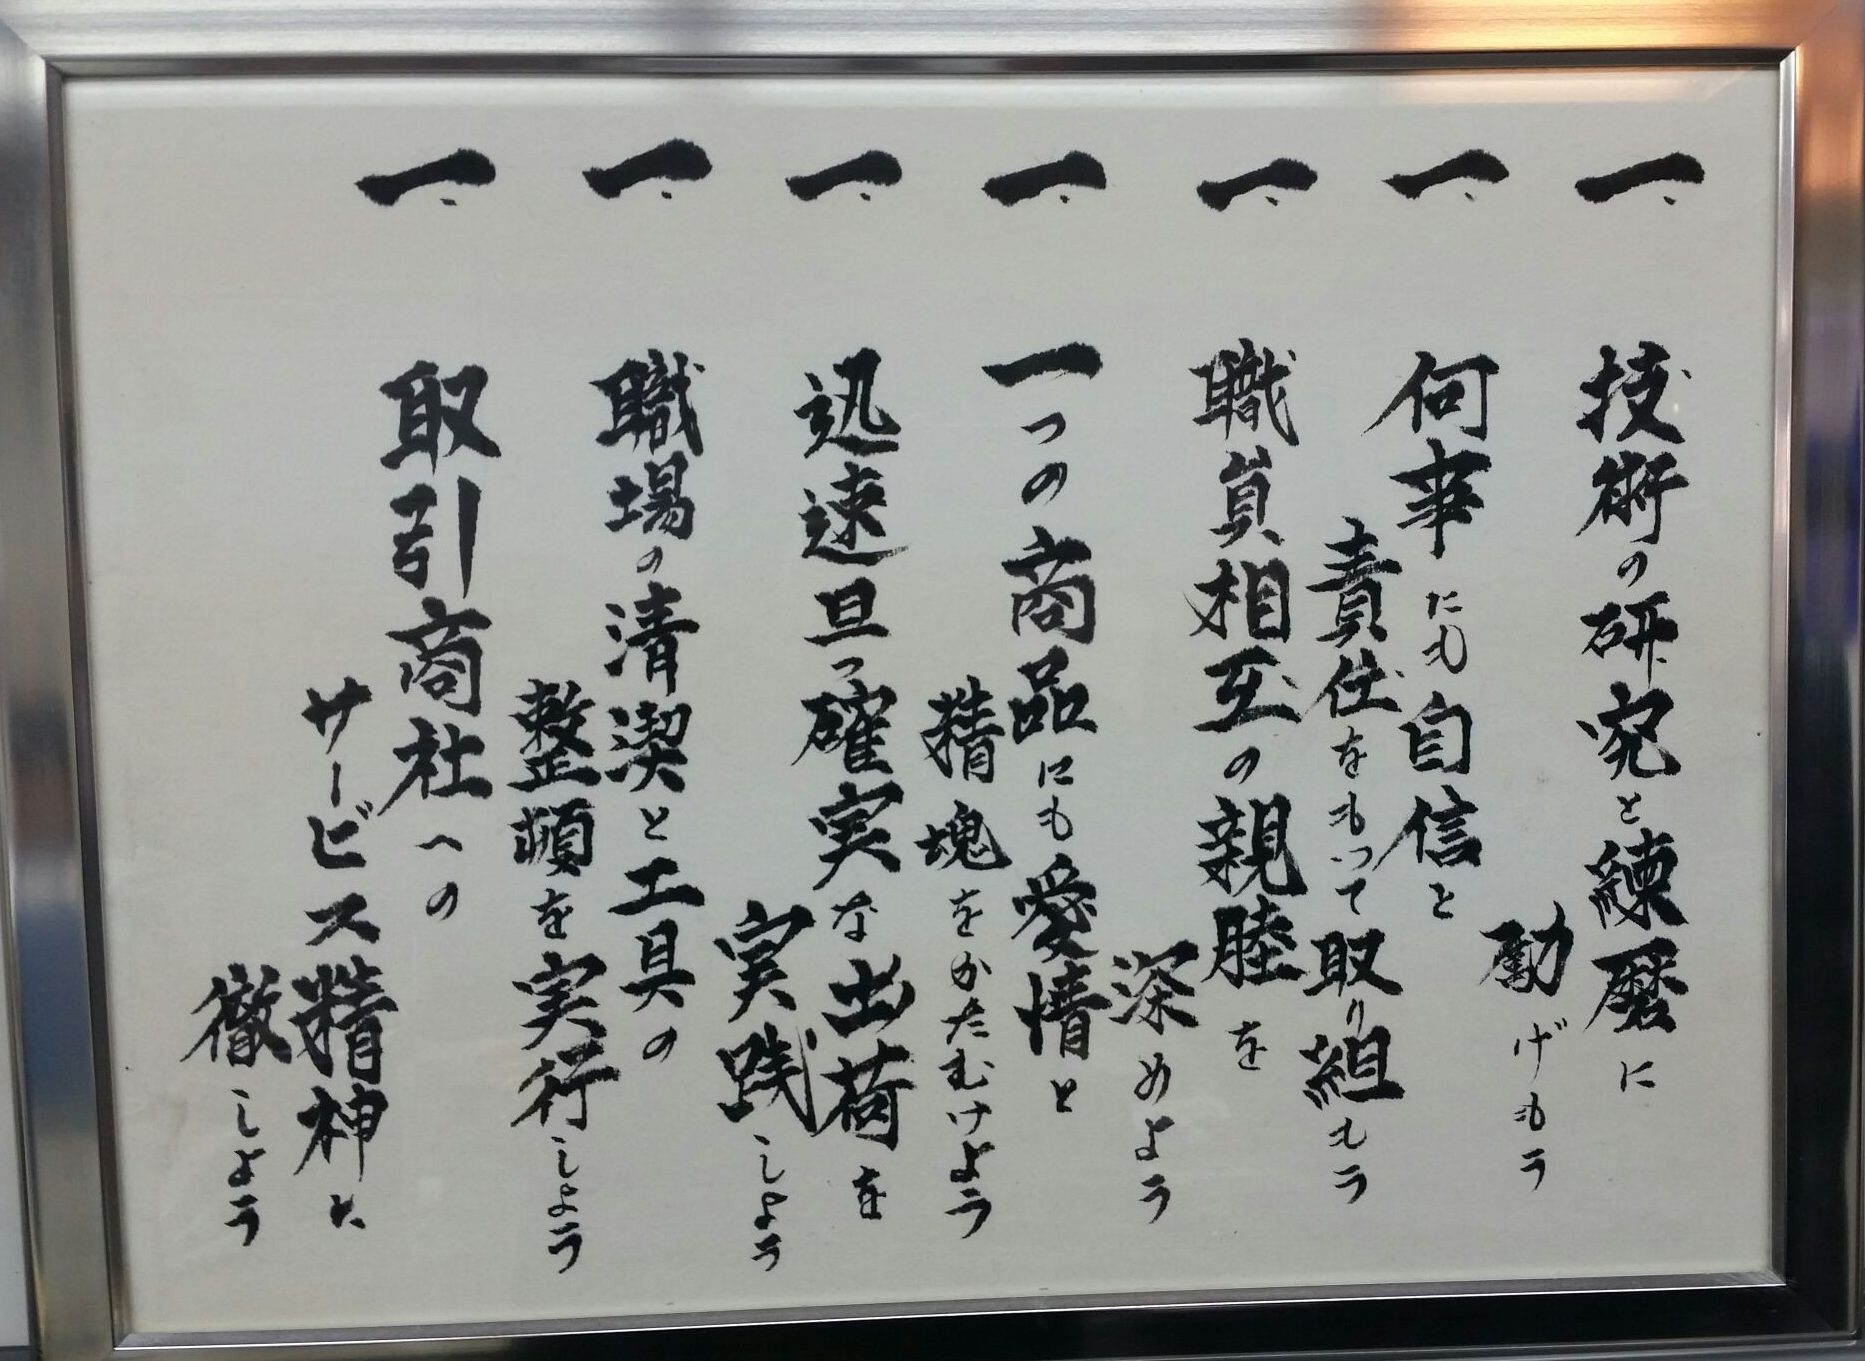 一、技術の研究と練磨に
勵げもう
一、何事にも自信と
責任をもって取り組もう
一、職員相互の親睦を
深めよう
一、一つの商品にも愛情と
精魂をかたむけよう
一、迅速且つ確実な出荷を
実践しよう
一、職場の清潔と工具の
整頓を実行しよう
一、取引商社への
サービス精神に
徹しよう